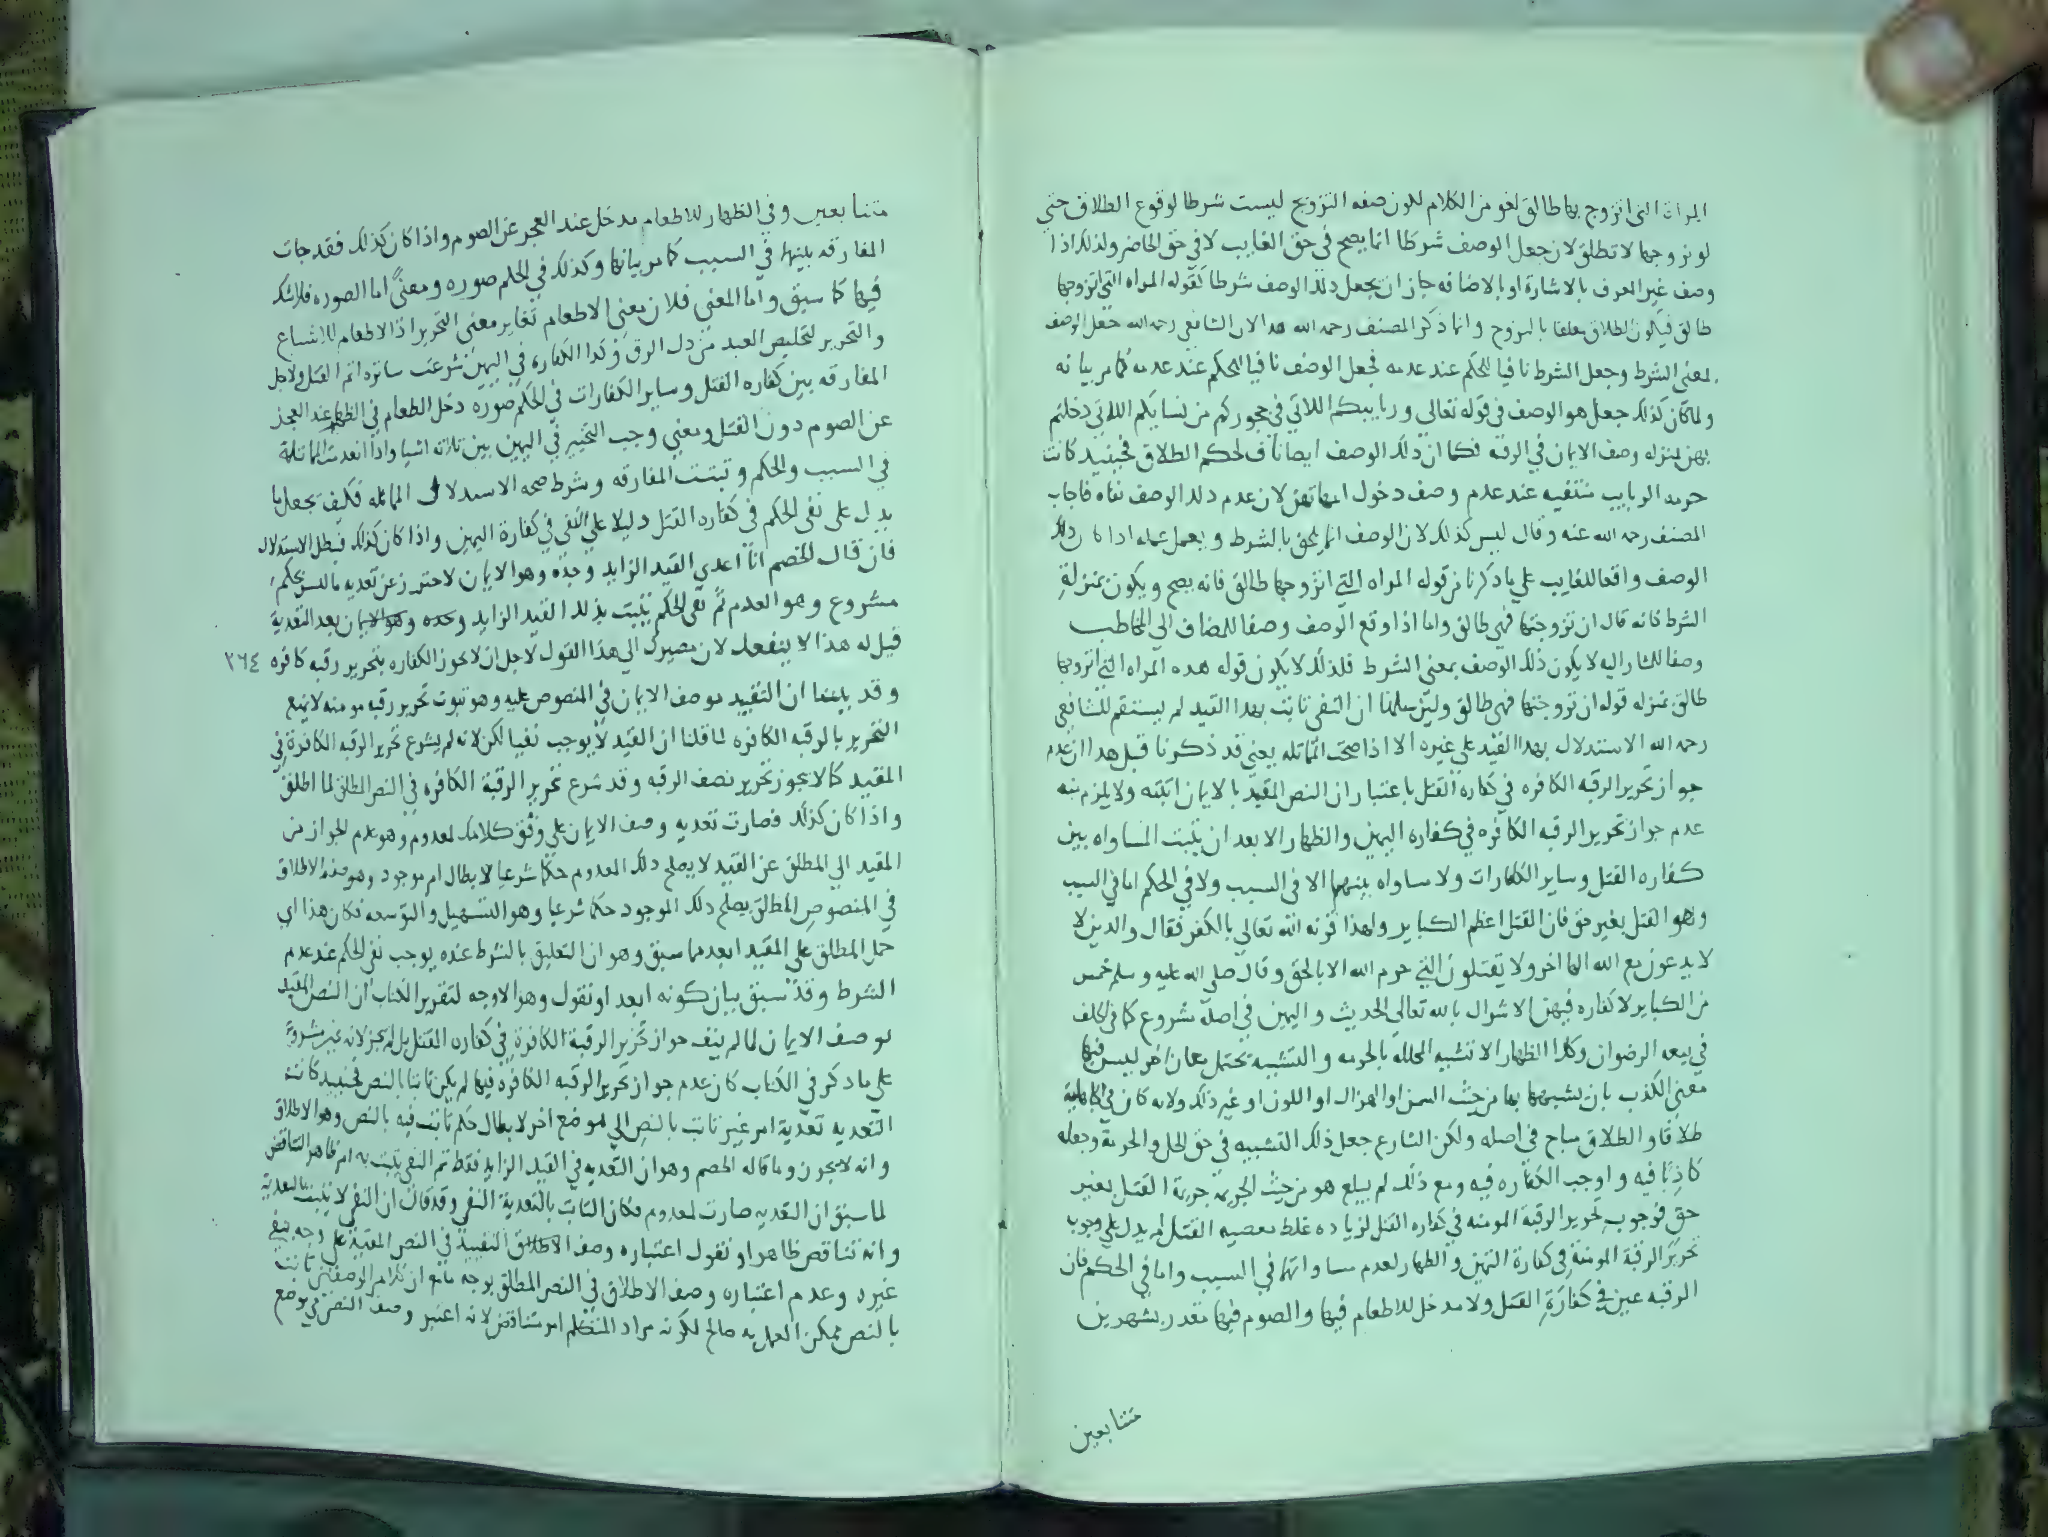 المراة التي اتزوج بها طالق لغو من الكلام لكون صفه التزويج ليست شرطا لوقوع الطلاق حتي
لو تزوجها لا تطلق لان جعل الوصف شرطا انما يصح في حق الغايب لا في حق الحاضر ولذلك اذا
وصف غير المعرف بالاشارة او بالاضافه جاز ان يجعل ذلك الوصف شرطا كقوله المراه التي اتزوجها
طالق فيكون الطلاق معلقا بالتزوج وانما ذكر المصنف رحمه الله هذا لان الشافعي رحمه الله جعل الوصف
بمعني الشرط وجعل الشرط نافيا للحكم عند عدمه فجعل الوصف نافيا للحكم عند عدمه كما مر بيانه
ولما كان كذلك جعل هو الوصف في قوله تعالي وربايبكم اللاتي في حجوركم من نسايكم اللاتي دخلتم
بهن بمنزله وصف الايمان في الرقبه فكما ان ذلك الوصف ايضا ناف لحكم الطلاق فحينيذ كانت
حرمه الربايب منتفيه عند عدم وصف دخول امهاتهن لان عدم ذلك الوصف نفاه فاجاب
المصنف رحمه الله عنه وقال ليس كذلك لان الوصف انما يلحق بالشرط ويعمل عمله اذا كان ذلك
الوصف واقعا للغايب علي ما ذكرنا من قوله المراه التي اتزوجها طالق فانه يصح ويكون بمنزلة
الشرط فانه قال ان تزوجتها فهي طالق واما اذا وقع الوصف وصفا للمضاف الي المخاطب
وصفا للمشار اليه لا يكون ذلك الوصف بمعني الشرط فلذلك لا يكون قوله هذه المراه التي اتزوجها
طالق بمنزله قوله ان تزوجتها فهي طالق ولين سلمنا ان النفي ثابت بهذا القيد لم يستقم للشافعي
رحمه الله الاستدلال بهذا القيد علي غيره الا اذا صحت المماثله يعني قد ذكرنا قبل هذا ان عدم
جواز تحرير الرقبه الكافره في كفاره القتل باعتبار ان النص المقيد بالايمان اثبته ولا يلزم منه
عدم جواز تحرير الرقبه الكافره في كفاره اليمين والظهار الا بعد ان يثبت المساواه بين
كفاره القتل وساير الكفارات ولا مساواه بينهما لا في السبب ولا في الحكم اما في السبب
وهو القتل بغير حق فان القتل اعظم الكباير ولهذا قرنه الله تعالي بالكفر فقال والذين لا
لا يدعون مع الله الها اخر ولا يقتلون النفس التي حرم الله الا بالحق وقال صلي الله عليه وسلم خمس
من الكباير لا كفاره فيهن الاشراك بالله تعالي الحديث واليمين في اصله مشروع كما في الحلف
في بيعه الرضوان وكذا الظهار لا تشبيه المحلله بالحرمه والتشبيه يحتمل معان اخر ليس فيها
معني الكذب بان يشبهها بها من حيث السمن او الهزال او اللون او غير ذلك ولانه كان في الجاهلية
طلاقا والطلاق مباح في اصله ولكن الشارع جعل ذلك التشبيه في حق الحل والحرمة وجعله
كاذبا فيه واوجب الكفاره فيه ومع ذلك لم يبلغ هو من حيث الجريمه جريمة القتل بغير
حق فوجوب تحرير الرقبة المومنه في كفاره القتل لزياده غلظ معصيه القتل لم يدل علي وجوب
تحرير الرقبة المومنة في كفارة اليمين والظهار لعدم مساواتهما في السبب واما في الحكم فان
الرقبه عين في كفارة القتل ولا مدخل للاطعام فيها والصوم فيها مقدر بشهرين
متتابعين
متتابعين وفي الظهار للاطعام مدخل عند العجز عن الصوم واذا كان كذلك فقد جات
المفارقه بينهما في السبب كما مر بيانها وكذلك في الحكم صوره ومعنًي اما الصوره فلا شك
فيها كما سبق واما المعني فلان معني الاطعام تغاير معني التحرير اذ الاطعام للاشباع
والتحرير لتخليص العبد من ذل الرق وكذا الكفاره في اليمين شرعت ساتره اثم القتل ولاجل
المفارقه بين كفاره القتل وساير الكفارات في الحكم صوره دخل الطعام في الظهار عند العجز
عن الصوم دون القتل ومعني وجب التخيير في اليمين بين ثلاثه اشيا واذا انعدمت المماثلة
في السبب والحكم وثبتت المفارقه وشرط صحه الاستدلال المماثله فكيف يجعل ما
يدل علي نفي الحكم في كفاره القتل دليلا علي النفي في كفارة اليمين واذا كان كذلك فبطل الاستدلال
فان قال الخصم انا اعدي القيد الزايد وحده وهو الايمان لاحترز عن تعديه ما ليس بحكم
مشروع وهو العدم ثم نفي الحكم يثبت بذلك القيد الزايد وحده وهو الايمان بعد التعدية
قيل له هذا لا ينفعك لان مصيرك الي هذا القول لاجل ان لا يجوز الكفاره بتحرير رقبه كافره ٣٦٤
وقد بينا ان التقييد بوصف الايمان في المنصوص عليه وهو ثبوت تحرير رقبه مومنه لا يمنع
التحرير بالرقبه الكافره لما قلنا ان القيد لا يوجب نفيا لكن لانه لم يشرع تحرير الرقبه الكافرة في
المقيد كما لا يجوز تحرير نصف الرقبه وقد شرع تحرير الرقبة الكافره في النص المطلق لما اطلق
واذا كان كذلك فصارت تعديه وصف الايمان علي وفق كلامك لمعدوم وهو عدم الجواز من
المقيد الي المطلق عن القيد لا يصلح ذلك المعدوم حكما شرعيا لابطال امر موجود وهو صفه الاطلاق
في المنصوص المطلق يصلح ذلك الموجود حكما شرعيا وهو التسهيل والتوسعه فكان هذا اي
حمل المطلق علي المقيد ابعد مما سبق وهو ان التعليق بالشرط عنده يوجب نفي الحكم عند عدم
الشرط وقد سبق بيان كونه ابعد او نقول وهو الاوجه لتقرير الكتاب ان النص المقيد
بوصف الايمان لما لم ينف جواز تحرير الرقبة الكافرة في كفاره القتل بل لم يجز لانه غير مشروع
علي ما ذكر في الكتاب كان عدم جواز تحرير الرقبه الكافره فيها لم يكن ثابتا بالنص فحينيذ كانت
التعديه تعدية امر غير ثابت بالنص الي موضع اخر لابطال حكم ثابت فيه بالنص وهو الاطلاق
وانه لا يجوز وما قاله الخصم وهو ان التعديه في القيد الزايد فقط ثم النفي يثبت به امر ظاهر التناقض
لما سبق ان التعديه صارت لمعدوم فكان الثابت بالتعدية النفي وقد قال ان النفي لا يثبت بالتعدية
وانه تناقض ظاهر او نقول اعتباره وصف الاطلاق التقييد في النص المقيد علي وجه ينفي
غيره وعدم اعتباره وصف الاطلاق في النص المطلق بوجه مانع ان كلا من الوصفين ثابت
بالنص ممكن العمل به صالح لكونه مراد المتكلم امر متناقض لانه اعتبر وصف النص في موضع